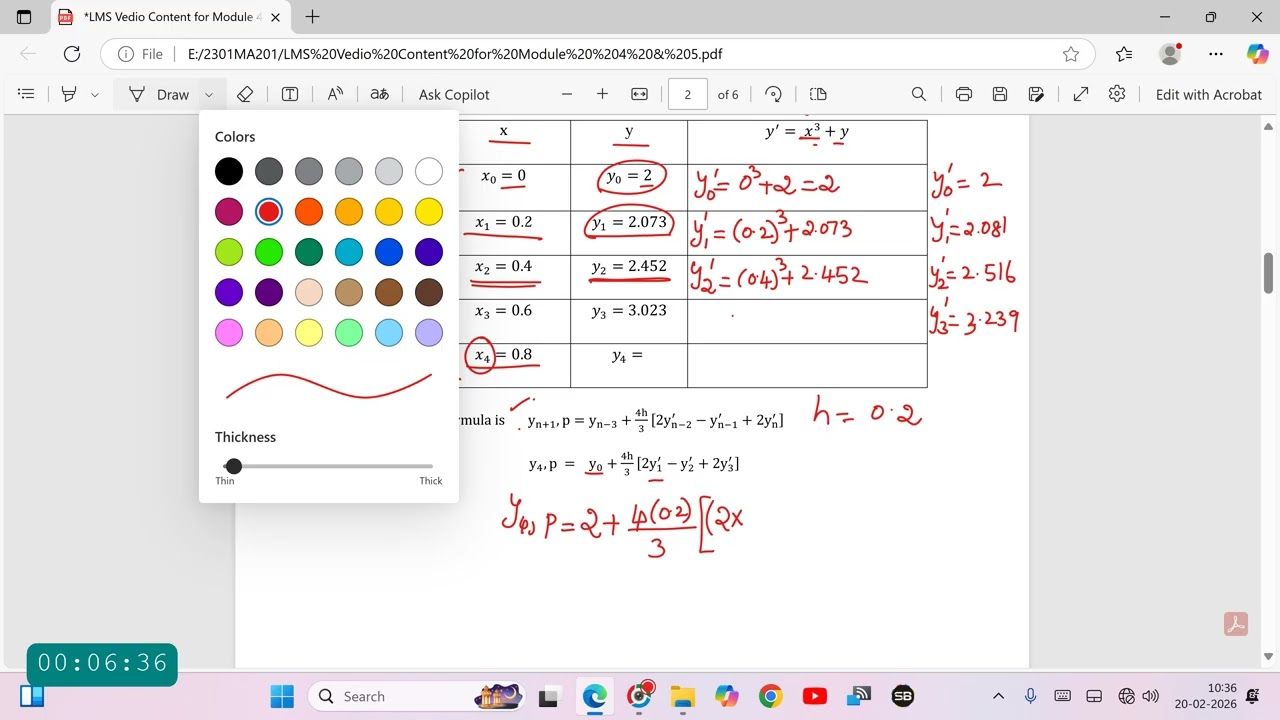 *LMS Vedio Content for Module 4
File E:/2301MA201/LMS%20Vedio%20Content%20for%20Module%20%204%20&%205.pdf
Draw Ask Copilot 2 of 6 Edit with Acrobat
Colors
Thickness
Thin Thick
x y y′ = x³ + y
x₀ = 0 y₀ = 2 y₀′ = 0³+2 = 2 y₀′ = 2
x₁ = 0.2 y₁ = 2.073 y₁′ = (0.2)³+2.073 y₁′ = 2.081
x₂ = 0.4 y₂ = 2.452 y₂′ = (0.4)³+2.452 y₂′ = 2.516
x₃ = 0.6 y₃ = 3.023 y₃′ = 3.239
x₄ = 0.8 y₄ =
mula is yₙ₊₁,p = yₙ₋₃ + 4h/3 [2y′ₙ₋₂ − y′ₙ₋₁ + 2y′ₙ] h = 0.2
y₄,p = y₀ + 4h/3 [2y₁′ − y₂′ + 2y₃′]
y₄,p = 2 + 4(0.2)/3 [(2x
00:06:36
Search
SB
10:36
20-02-2026